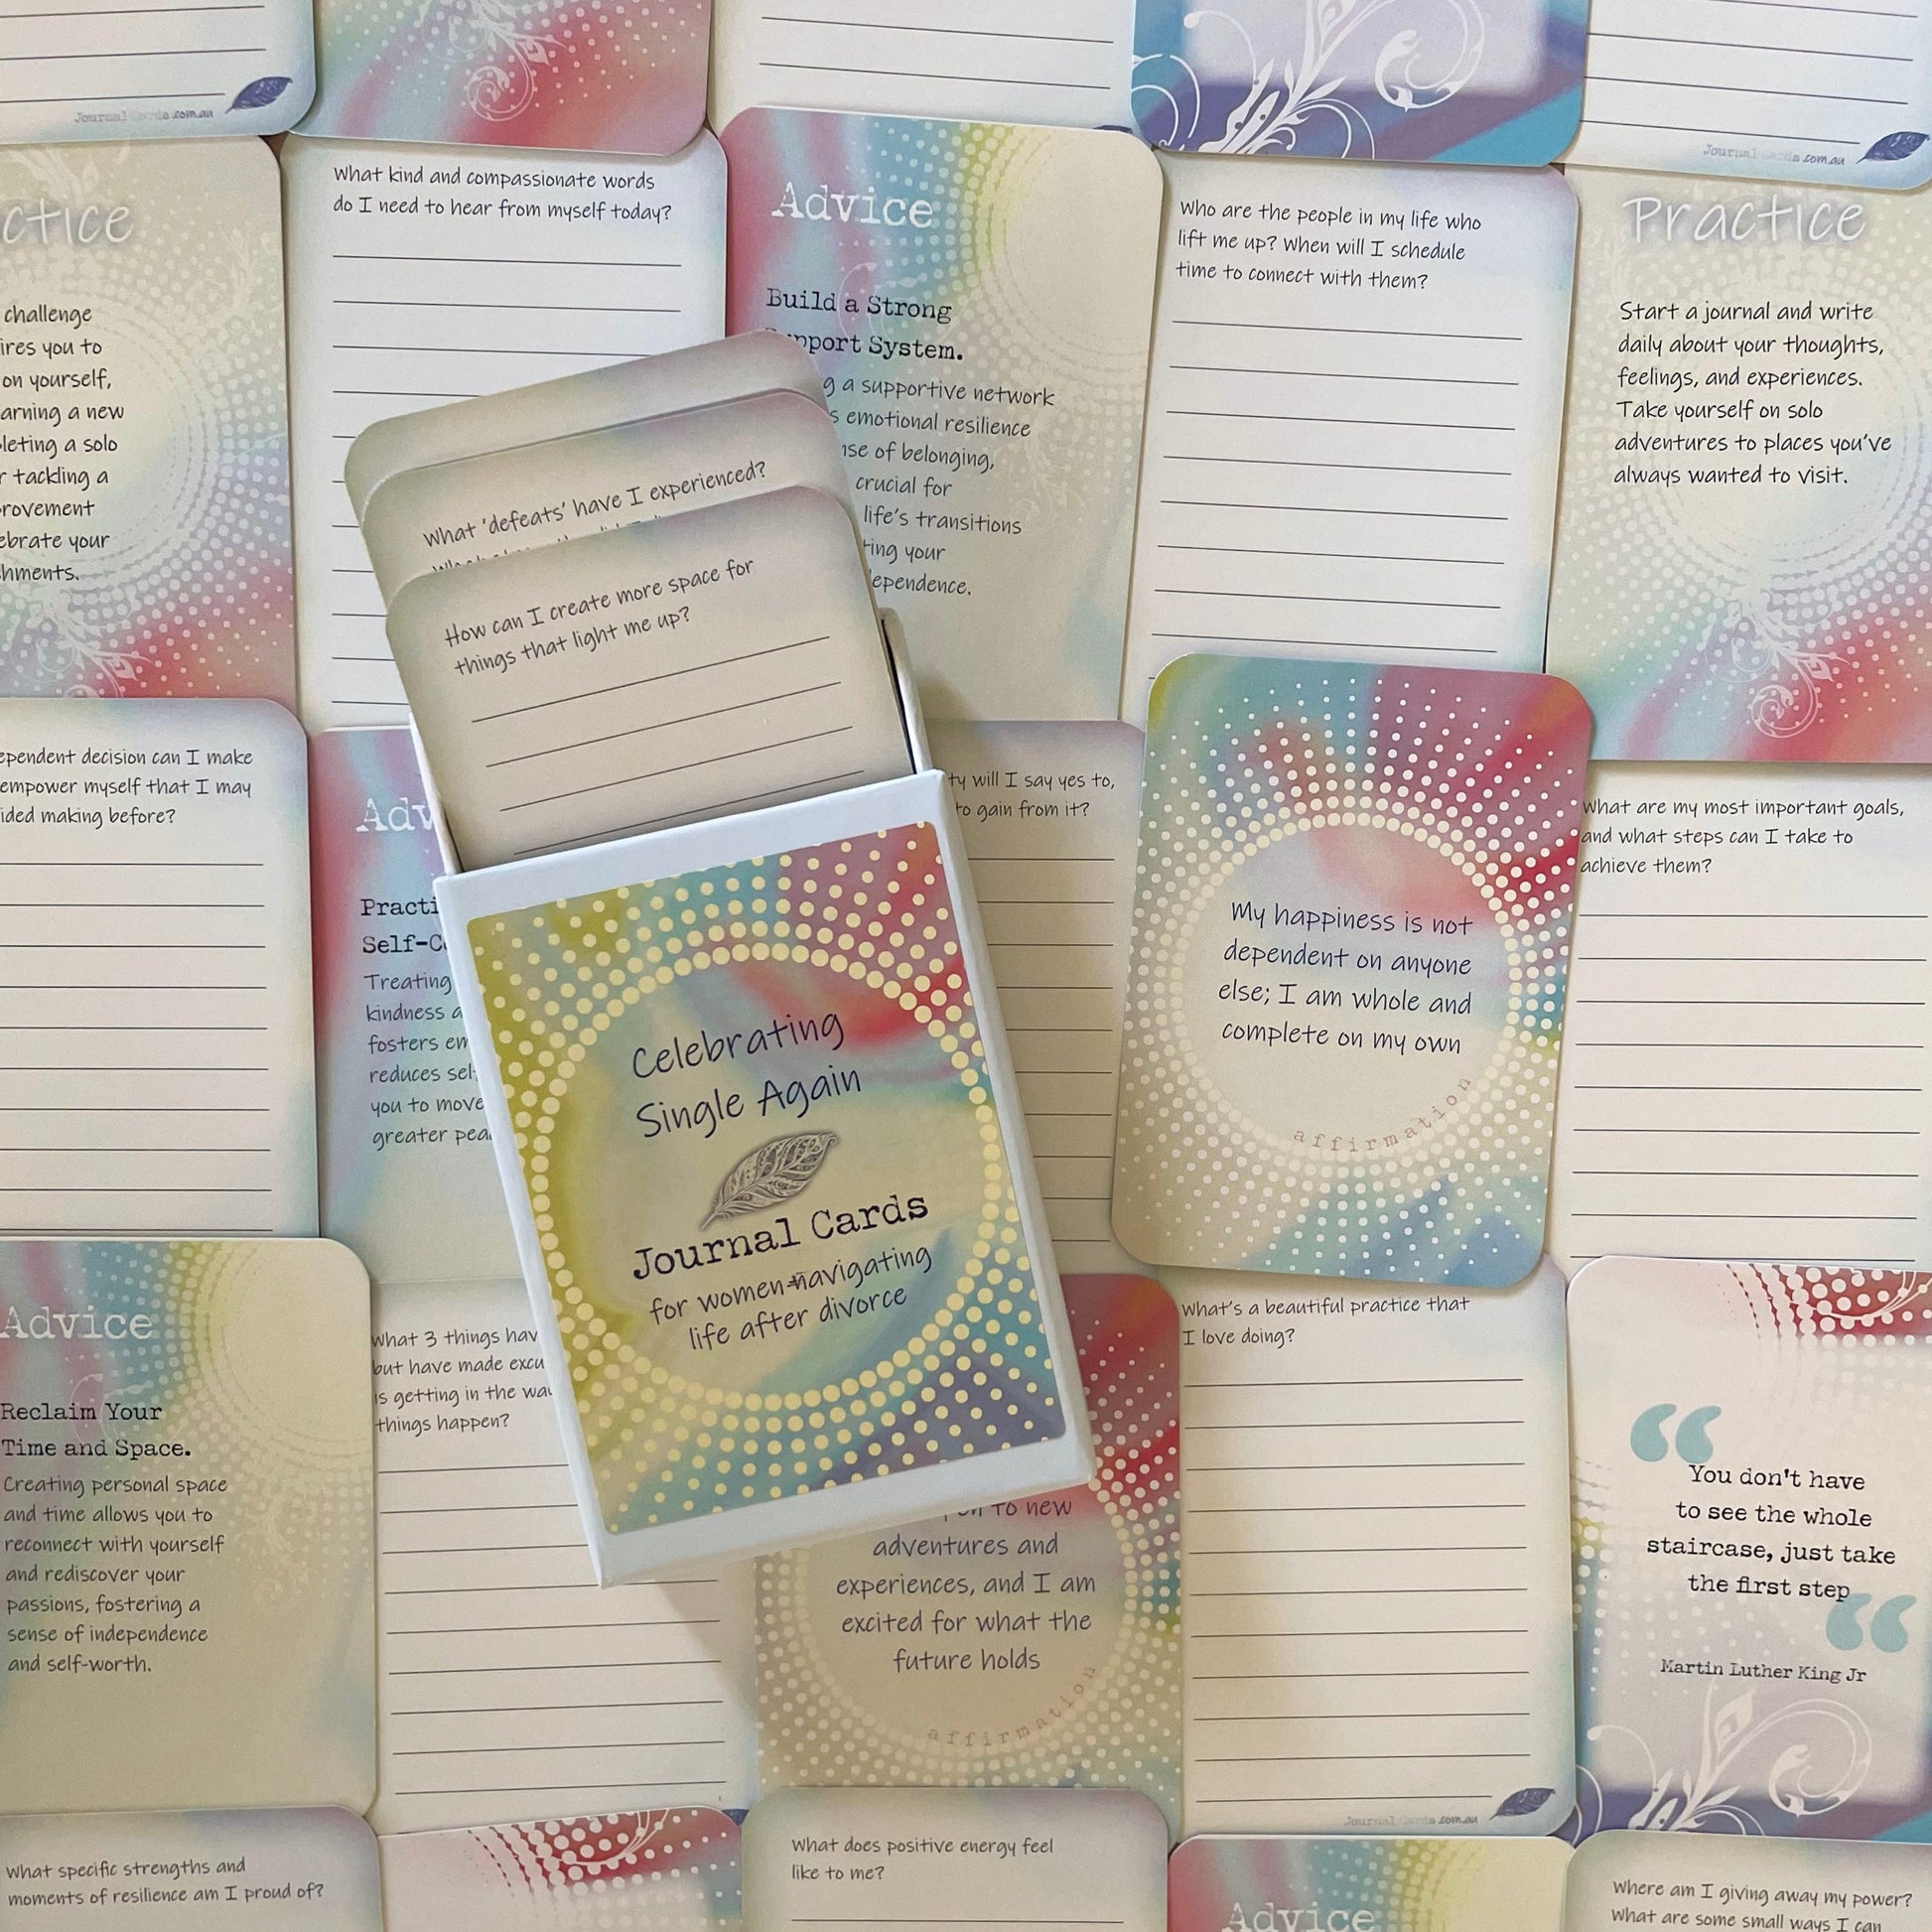 Journal Cards.com.au
Journal Cards.com.au
What kind and compassionate words
do I need to hear from myself today?
Advice
Build a Strong
Support System.
a supportive network
emotional resilience
of belonging,
crucial for
life's transitions
your
Who are the people in my life who
lift me up? When will I schedule
time to connect with them?
Practice
Start a journal and write
daily about your thoughts,
feelings, and experiences.
Take yourself on solo
adventures to places you've
always wanted to visit.
challenge
you to
on yourself,
a new
a solo
tackling a
your
What 'defeats' have I experienced?
How can I create more space for
things that light me up?
decision can I make
empower myself that I may
making before?
Self-
Treating
kindness
fosters
reduces
you to move
greater
will I say yes to,
to gain from it?
My happiness is not
dependent on anyone
else; I am whole and
complete on my own
affirmation
What are my most important goals,
and what steps can I take to
achieve them?
Celebrating
Single Again
Journal Cards
for women navigating
life after divorce
Advice
Reclaim Your
Time and Space.
Creating personal space
and time allows you to
reconnect with yourself
and rediscover your
passions, fostering a
sense of independence
and self-worth.
What 3 things
but have made
is getting in the
things happen?
to new
adventures and
experiences, and I am
excited for what the
future holds
affirmation
What's a beautiful practice that
I love doing?
Journal Cards.com.au
“You don't have
to see the whole
staircase, just take
the first step“
Martin Luther King Jr
What specific strengths and
moments of resilience am I proud of?
What does positive energy feel
like to me?
Advice
Where am I giving away my power?
What are some small ways I can